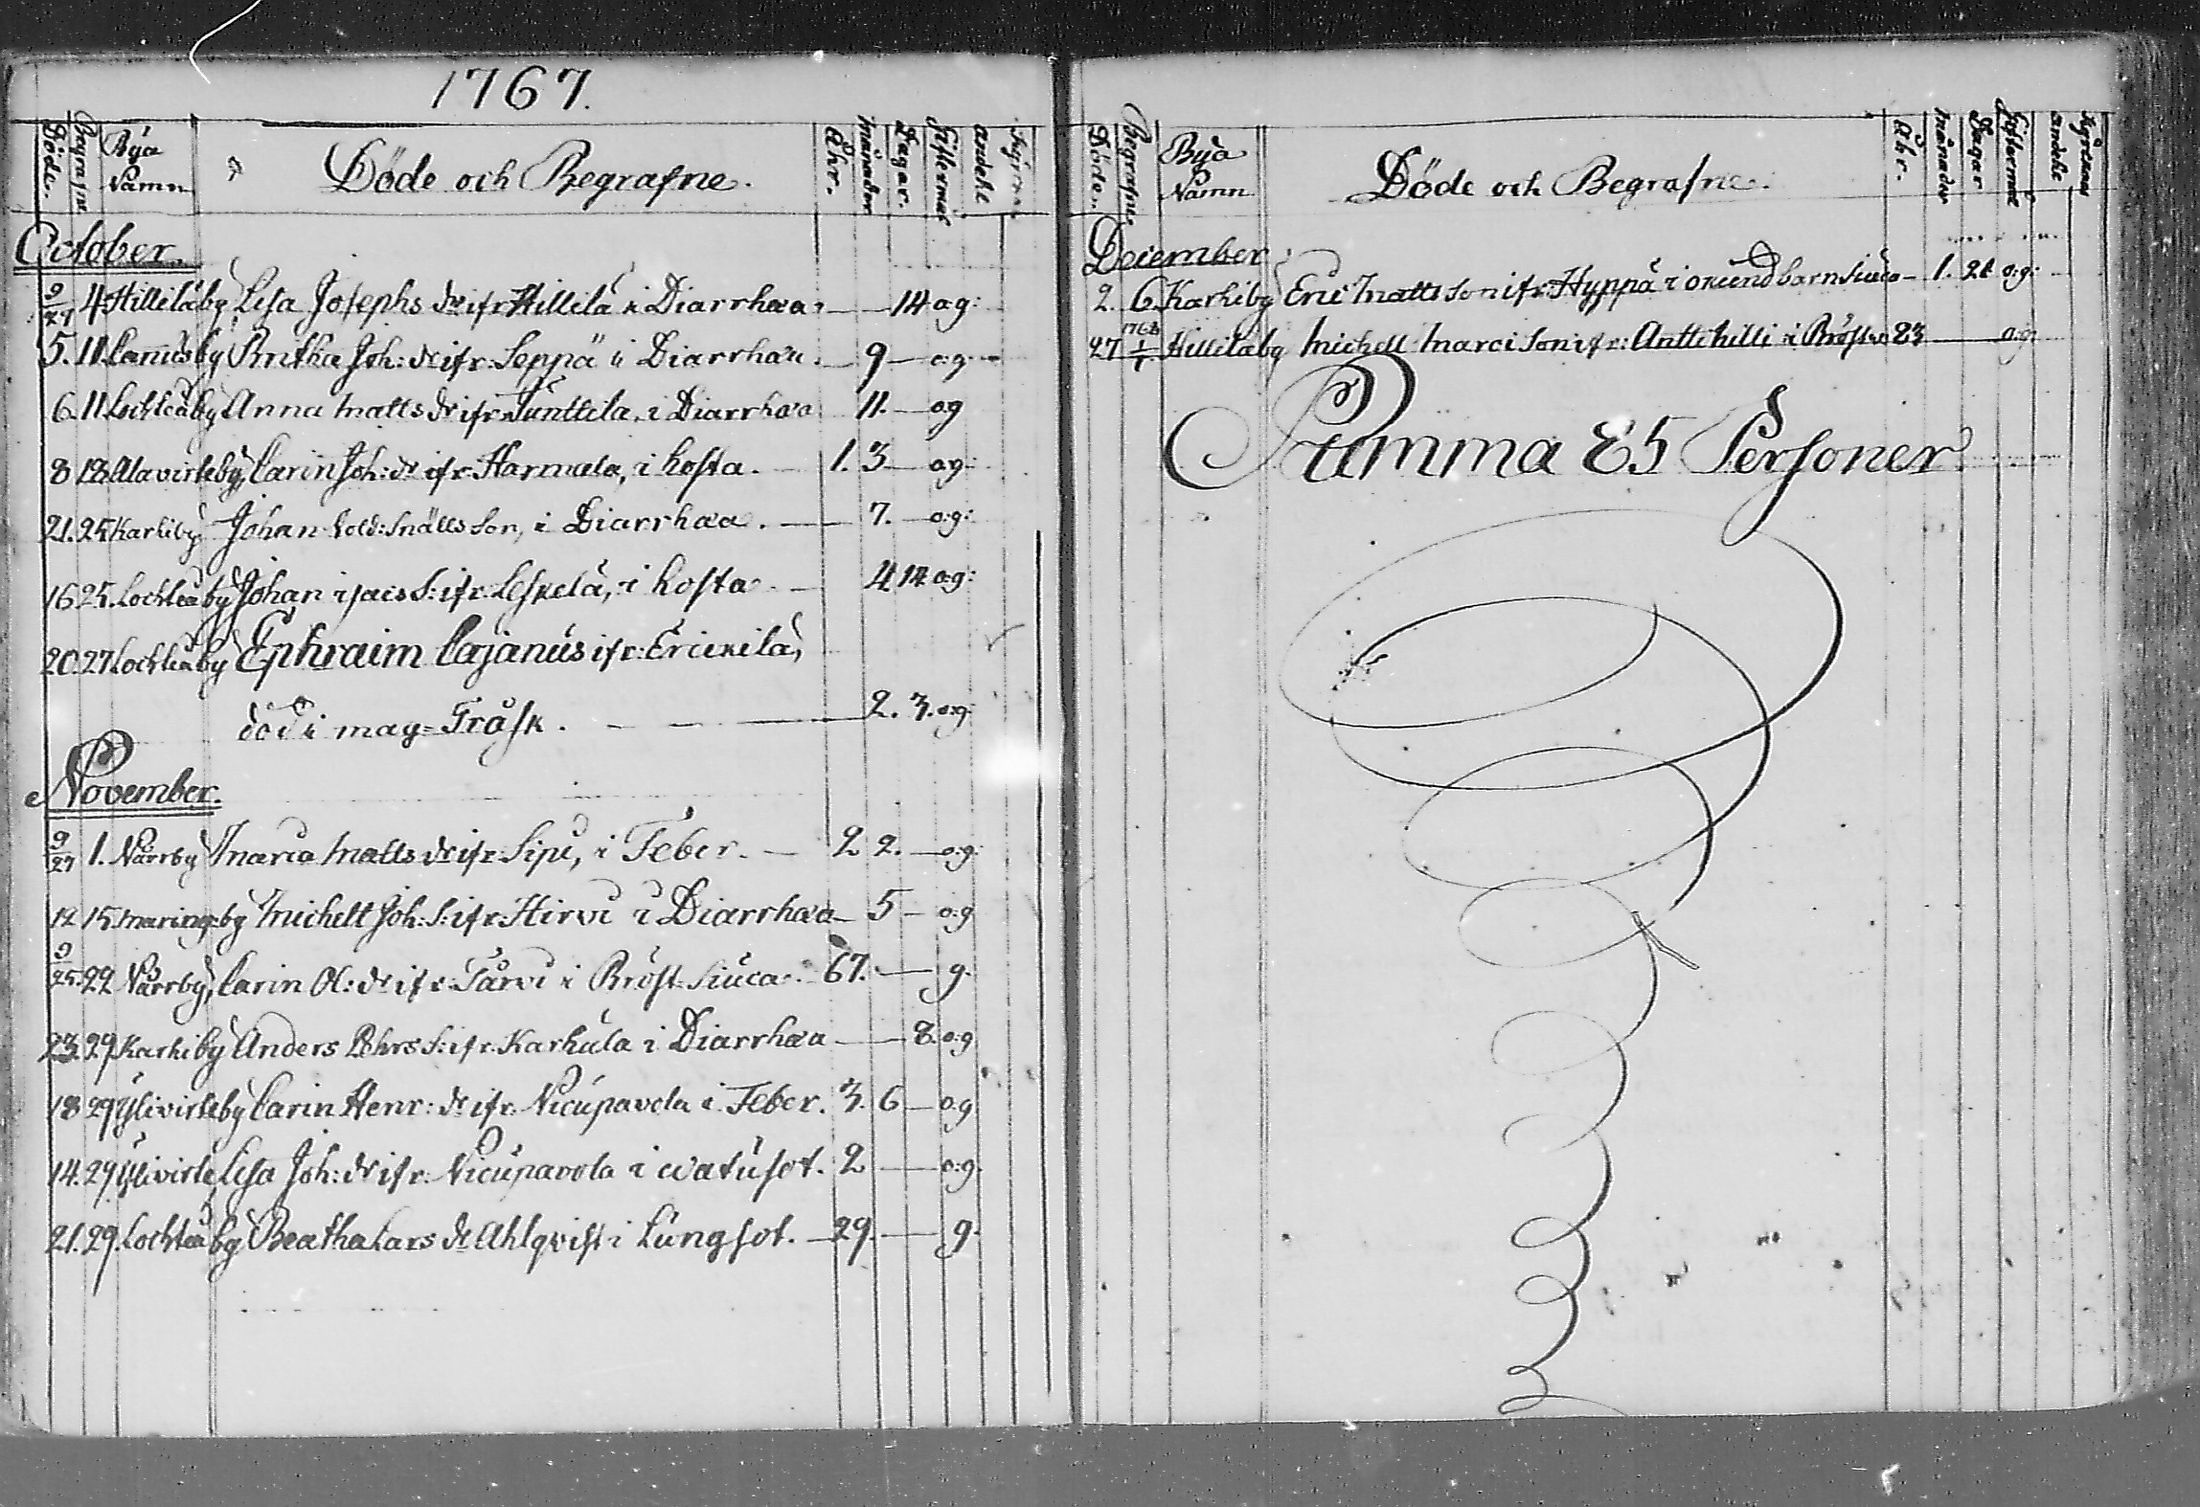 1767.
Döde. Begrafne Bÿa Namn Döde och Begrafne. Åhr. Månader Dagar. Giftermål andehl
October.
9/27 4 Hilliläbÿ Lisa Josephs dr ifr. Hillilä i Diarrhæa 14 o.g:
5. 11. Cannusbÿ Britha Joh: dr ifr. Seppä i Diarrhæa. 9 o:g.
6. 11 Lochteåbÿ Anna Matts dr ifr. Tunttila, i Diarrhæa 11. o.g
8 18 Alavirtebÿ, Carin Joh: dr ifr. Harmala, i hosta. 1. 3 o.g:
21. 25 Karhibÿ Johan Snälls Son, i Diarrhæa. 7. o:g:
16 25. Lochteåbÿ Johan S: ifr. Leskelä, i hosta 4 14 o.g:
20. 27 Lochteåbÿ Ephraim Cajanus ifr: Erickilä,
död i mag=Tråsk. 2. 3. o.g:
November.
9/27 1. Närrbÿ Maria Matts dr ifr. Sipi, i Feber. 2 2. o:g:
12 15 Maringbÿ Michell Joh: S: ifr. Hirvi i Diarrhæa 5 o:g
9/25. 22 Närrbÿ, Carin Ol: dr ifr. Järvi i Bröst Siuca. 67. g.
23. 29 Karhibÿ Anders S: ifr. Karhula i Diarrhæa 8. o:g
18 29 Ylivirtebÿ Carin Henr: dr ifr. Nicupavola i Feber. 3. 6 o:g
14. 29 Ylivirte, Lisa Joh: dr ifr. Nicupavola i watusot. 2 o:g.
21. 29. Lochteåbÿ Beatha Lars dr Ahlqvist i Lungsot. 29. g.
Döde. Begrafne Bÿa Namn Döde och Begrafne. Åhr. Månader Dagar Giftermål andehl Kyrckans
December
2. 6 Karhibÿ Eric Matts Son ifr. Hyppä i okiend barnsiuca 1. 21 o:g:
27 1768 1/1 Hilliläbÿ Michell Marci Son ifr: Anttihilli i Bröstv. 23 o.g:
Summa 85 Personer